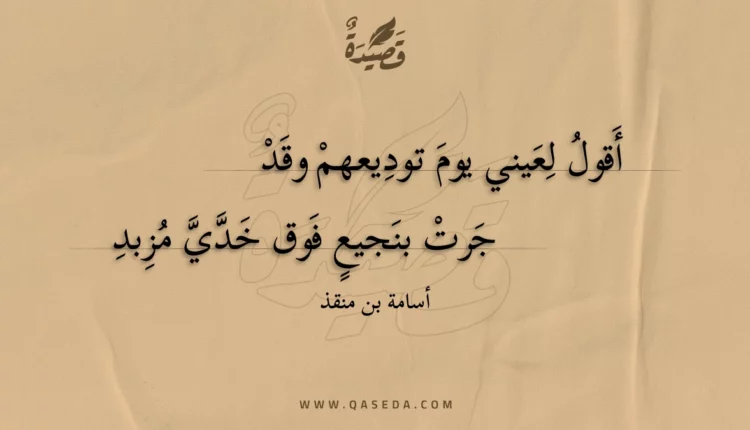 قَصِيدَةٌ
أَقولُ لِعَيني يومَ توديعهمْ وقَدْ
جَرتْ بنَجيعٍ فَوق خَدَّيَّ مُزِبدِ
أسامة بن منقذ
WWW.QASEDA.COM